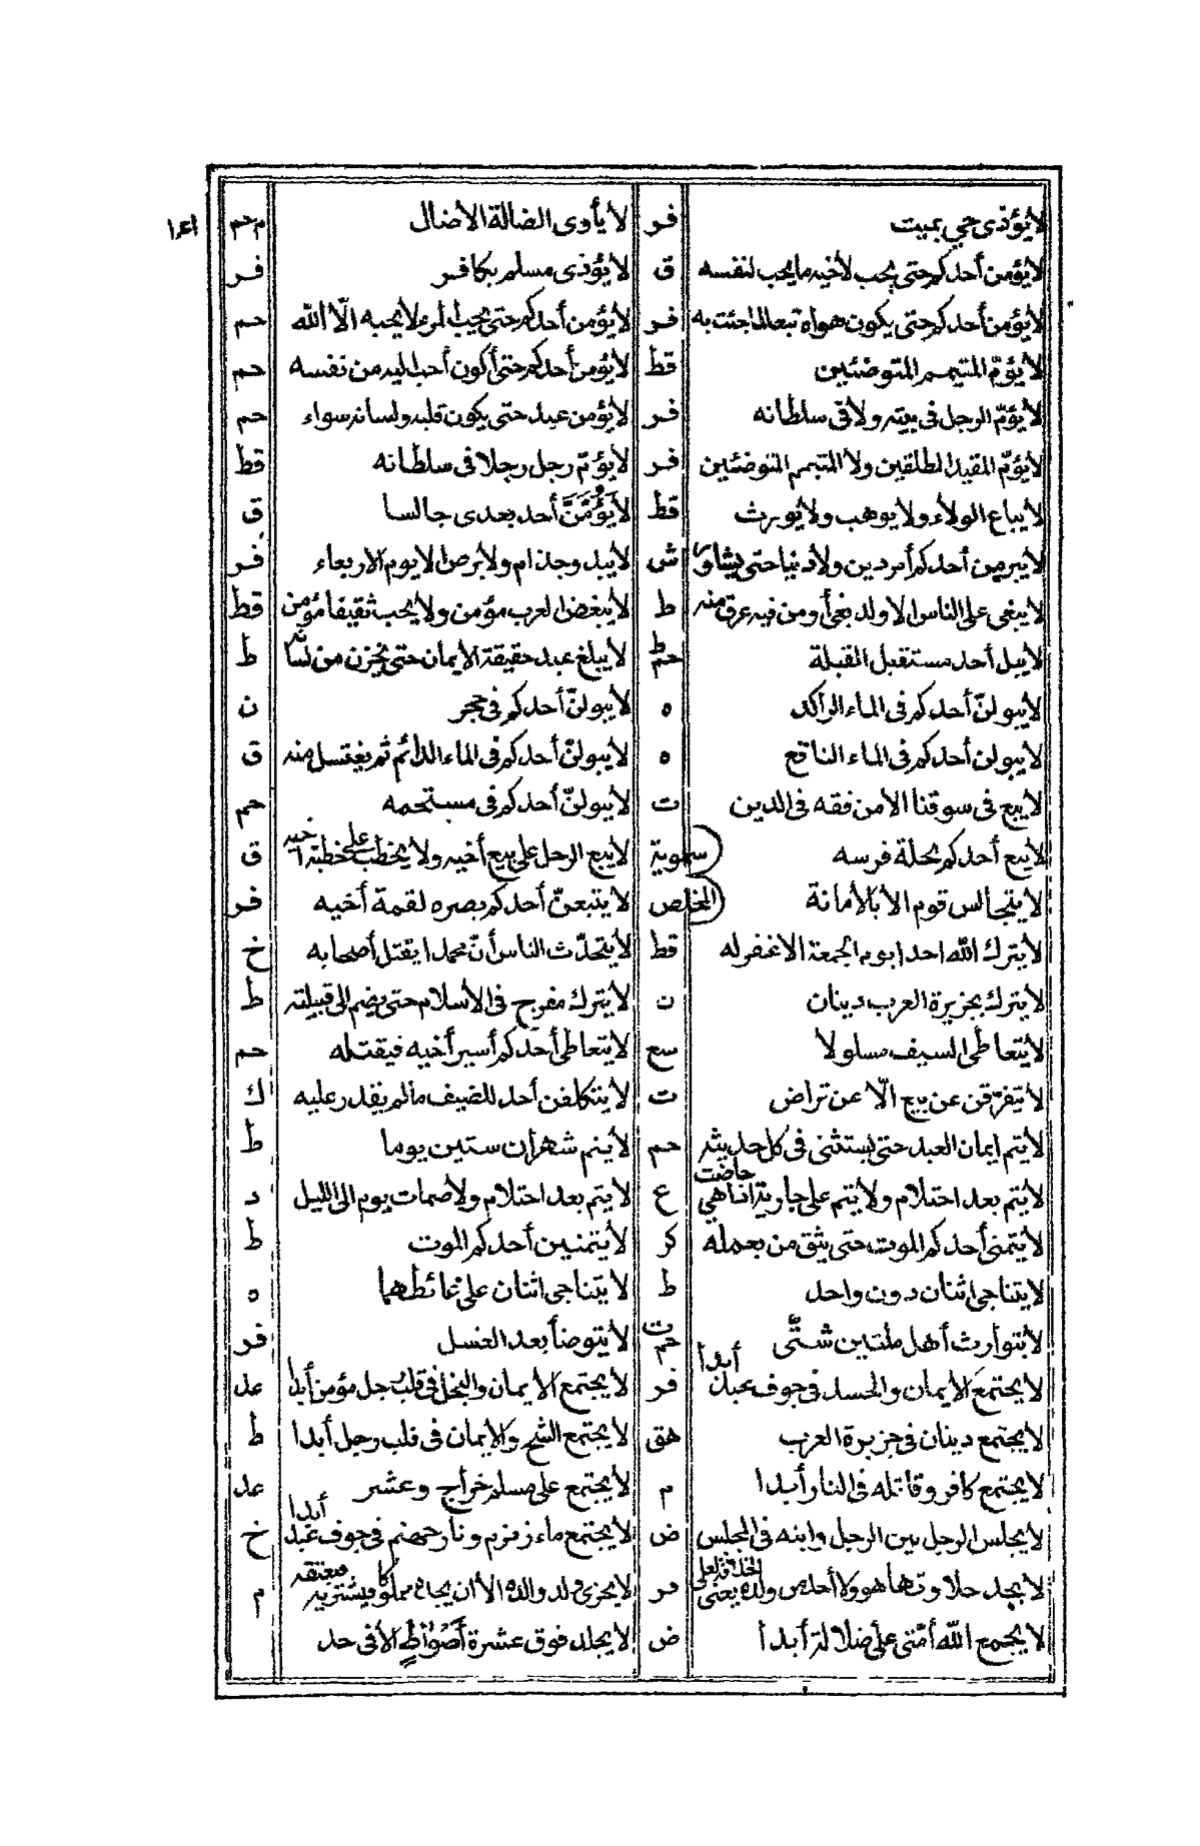 ١٤١
لا يؤذى حي بميت فر لا يأوى الضالة الأضال م حم
لا يؤمن أحدكم حتى يحب لأخيه ما يحب لنفسه ق لا يؤذى مسلم بكافر فر
لا يؤمن أحدكم حتى يكون هواه تبعا لما جئت به فر لا يؤمن أحدكم حتى يحب المرء لا يحبه الّا الله حم
لا يؤمّ المتيمم المتوضئين قط لا يؤمن أحدكم حتى أكون أحب اليه من نفسه حم
لا يؤمّ الرجل فى بيته ولا فى سلطانه فر لا يؤمن عبد حتى يكون قلبه ولسانه سواء حم
لا يؤمّ المقيد المطلقين ولا المتيمم المتوضئين فر لا يؤمّ رجل رجلا فى سلطانه قط
لا يباع الولاء ولا يوهب ولا يورث قط لا يَؤُمَّنَّ أحد بعدى جالسا ق
لا يبرمن أحدكم أمر دين ولا دنيا حتى يشاور ش لا يبد وجذام ولا برص الا يوم الاربعاء فر
لا يبغى على الناس الا ولد بغى أو من فيه عرق منه ط لا يبغض العرب مؤمن ولا يحب ثقيفا مؤمن قط
لا يبل أحد مستقبل القبلة حم ط لا يبلغ عبد حقيقة الأيمان حتى يخزن من لسانه ط
لا يبولنّ أحدكم فى الماء الراكد ه لا يبولنّ أحدكم فى جحر ن
لا يبولن أحدكم فى الماء الناقع ه لا يبولنّ أحدكم فى الماء الدائم ثم يغتسل منه ق
لا يبع فى سوقنا الا من فقه فى الدين ت لا يبولنّ أحدكم فى مستحمه حم
لا يبع أحدكم بحلة فرسه سموية لا يبع الرجل على بيع أخيه ولا يخطب على خطبة أخيه ق
لا يتجالس قوم الا بالأمانة المخلص لا يتبعنّ أحدكم بصره لقمة أخيه فر
لا يترك الله احدا يوم الجمعة الا غفر له قط لا يتحدّث الناس أنّ محمدا يقتل أصحابه خ
لا يترك بجزيرة العرب دينان ن لا يترك مفرج فى الأسلام حتى يضم الى قبيلته ط
لا يتعاطى السيف مسلولا سع لا يتعاطى أحدكم أسير أخيه فيقتله حم
لا يتفرّقن عن بيع الّا عن تراض ت لا يتكلفن أحد للضيف ما لم يقدر عليه ك
لا يتم ايمان العبد حتى يستثنى فى كل حديثه حم لا يتم شهران ستين يوما ط
لا يتم بعد احتلام ولا يتم على جارية اذا هى حاضت ع لا يتم بعد احتلام ولا صمات يوم الى الليل د
لا يتمنى أحدكم الموت حتى يثق من بعمله كر لا يتمنين أحدكم الموت ط
لا يتناجى اثنان دون واحد ط لا يتناجى اثنان على غائطهما ه
لا يتوارث أهل ملتين شتّى ت حم لا يتوضأ بعد الغسل فر
لا يجتمع الايمان والحسد فى جوف عبد أبدا فر لا يجتمع الايمان والبخل فى قلب رجل مؤمن أبدا عد
لا يجتمع دينان فى جزيرة العرب هق لا يجتمع الشح والايمان فى قلب رجل أبدا ط
لا يجتمع كافر وقاتله فى النار أبدا م لا يجتمع على مسلم خراج وعشر عد
لا يجلس الرجل بين الرجل وابنه فى المجلس ض لا يجتمع ماء زمزم ونار جهنم فى جوف عبد أبدا خ
لا يجد حلاوتها هو ولا أحد من ولده يعنى الخلافة لعلى فر لا يجزى ولد والده الا أن يجده مملوكا فيشتريه فيعتقه م
لا يجمع الله أمّتى على ضلالة أبدا ض لا يجلد فوق عشرة أسواط الا فى حد